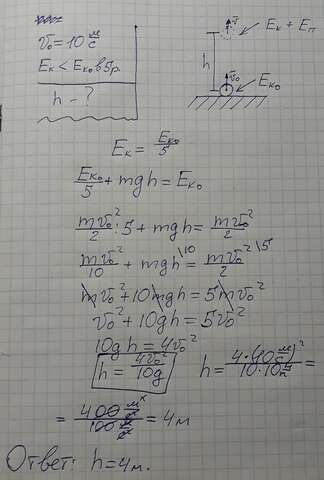 v₀ = 10 м/с
Eк < Eк₀ в 5 р.
h - ?
v
Eк + Eп
h
v₀
Eк₀
Eк = Eк₀/5
Eк₀/5 + mgh = Eк₀
mv₀²/2 : 5 + mgh = mv₀²/2
mv₀²/10 + mgh\10 = mv₀²/2 \5
mv₀² + 10mgh = 5mv₀²
v₀² + 10gh = 5v₀²
10gh = 4v₀²
h = 4v₀²/10g h = 4·(10 м/с)²/10·10 м/с² =
= 400 м²/с² / 100 м/с² = 4 м
Ответ: h = 4 м.